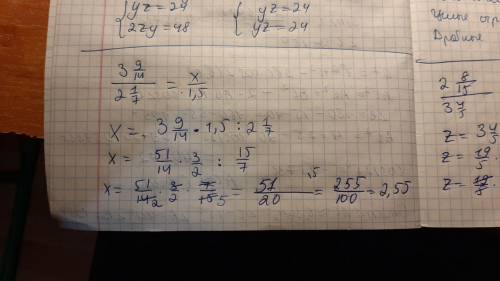 { yz = 24   { yz = 24
{ 2zy = 48   { yz = 24
Целые
Дробные
3 9/14 / 2 1/7 = x/1,5
x = 3 9/14 · 1,5 : 2 1/7
x = 51/14 · 3/2 : 15/7
x = 51/14 2 · 3/2 · 7/15 5 = 51/20 ,5 = 255/100 = 2,55
2 8/15
z = 3
z = 19/5
z = 19/5